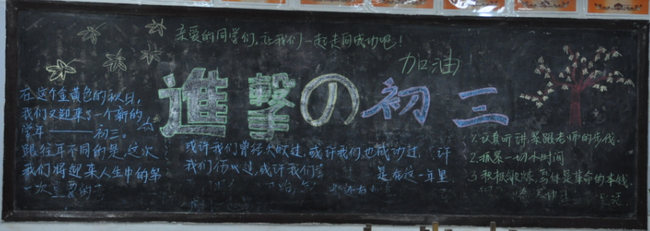 亲爱的同学们,让我们一起走向成功吧!
加油!
進撃の初三
在这个金黄色的秋日,
我们又迎来了一个新的
学年——初三。
跟往年不同的是,这次
我们将迎来人生中的第
一次
或许我们曾经失败过,或许我们也成功过,许
我们伤心过,或许我们
是在这一年里
1.认真听讲,紧跟老师的步伐.
2.抓紧一切小时间
3.积极锻炼,身体是革命的本钱.